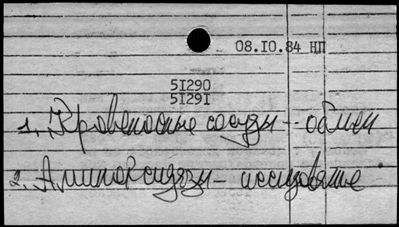 08.IO.84 НП
5I290
5I29I
1. Кровеносные сосуды – обмен
2. Аминоксидазы – исследование